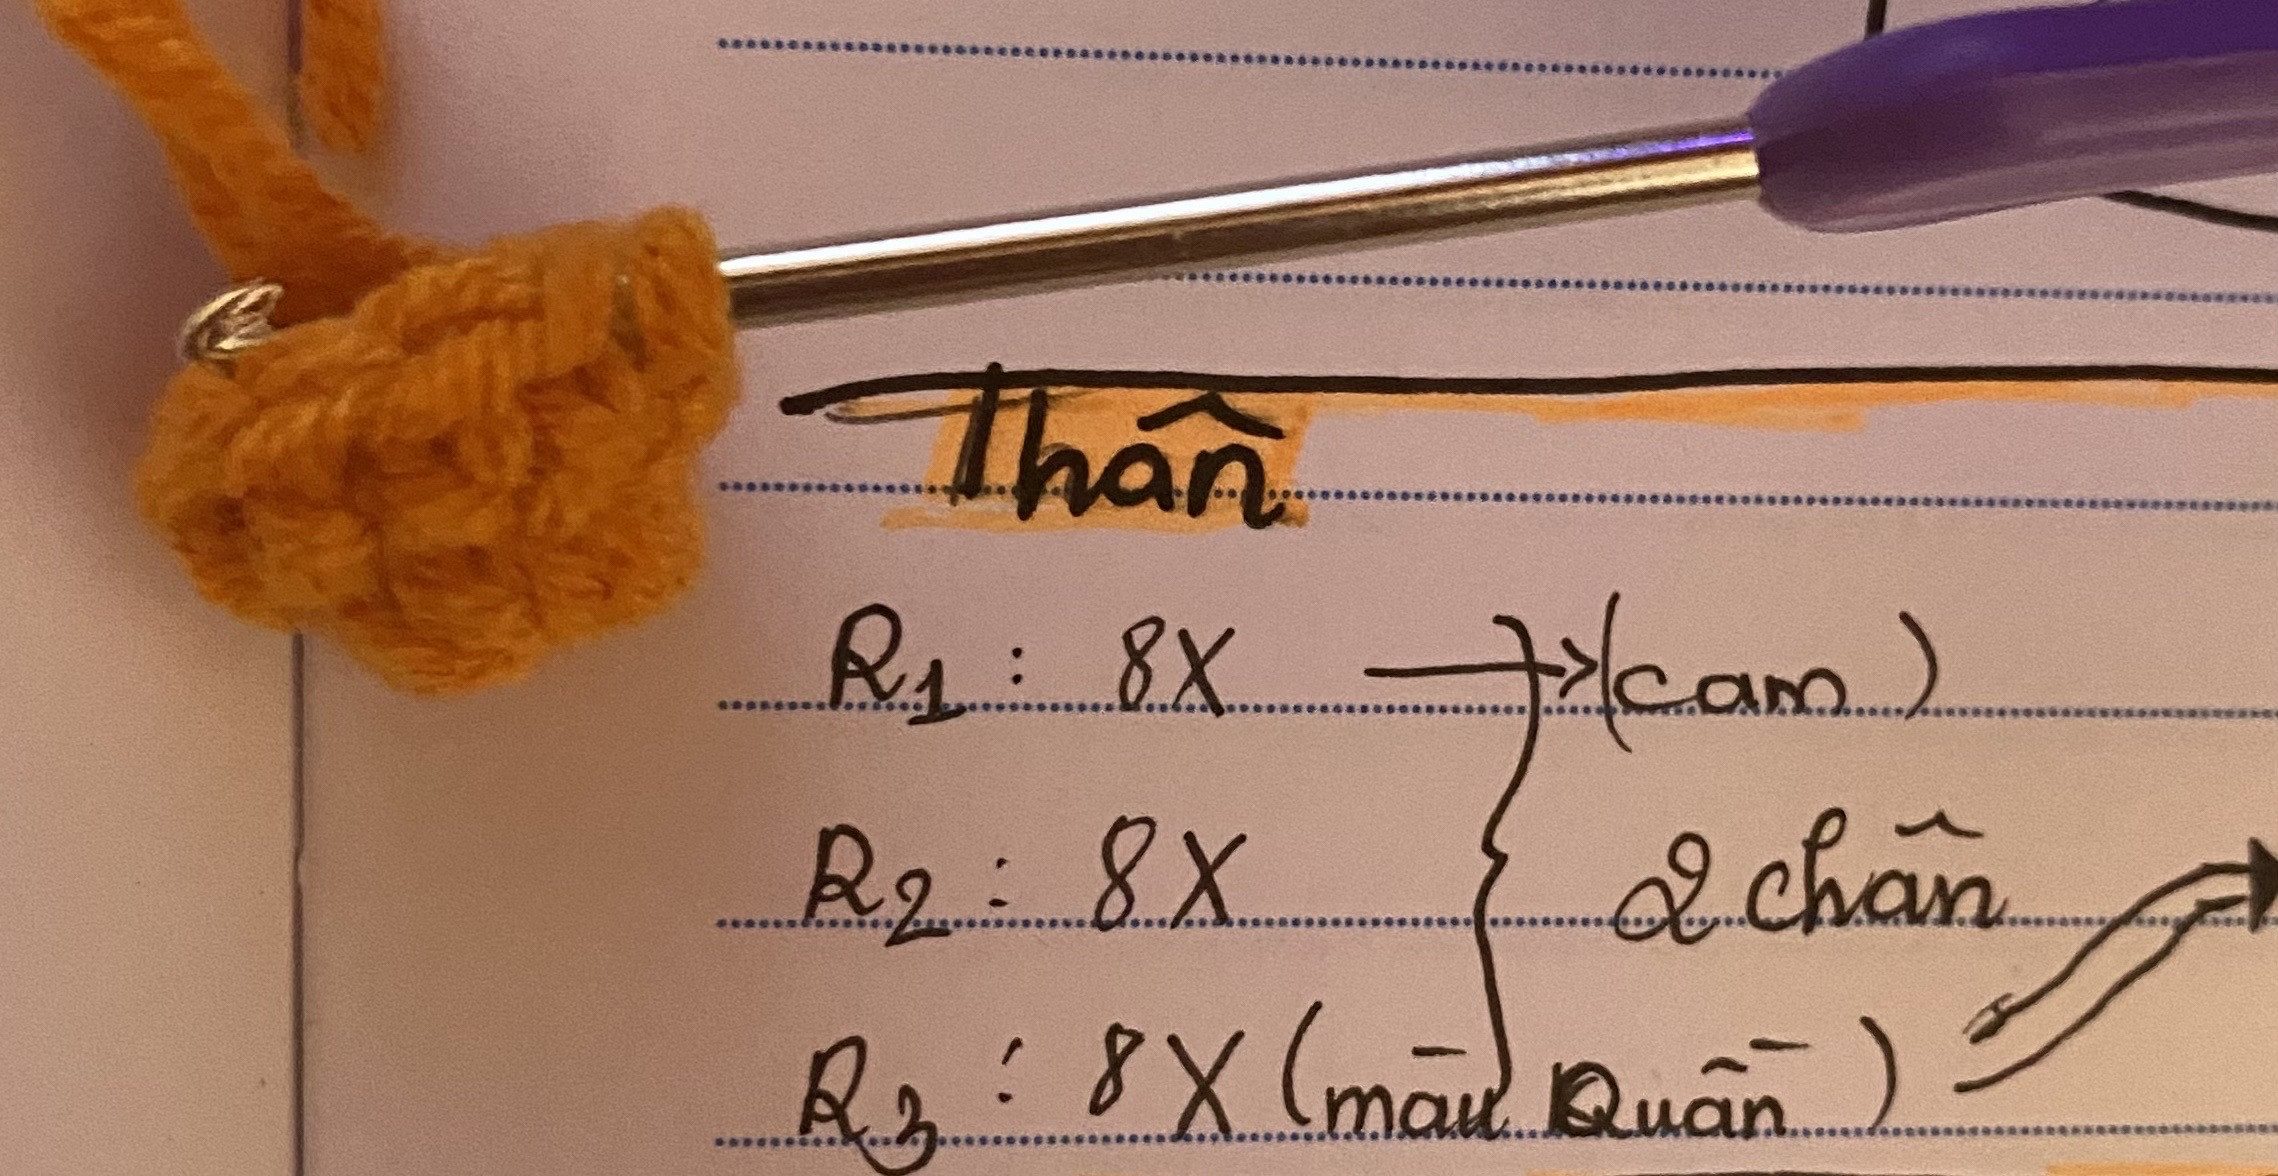 Thân
R1 : 8X → (cam)
R2 : 8X 2 chân
R3 : 8X (màu Quần)